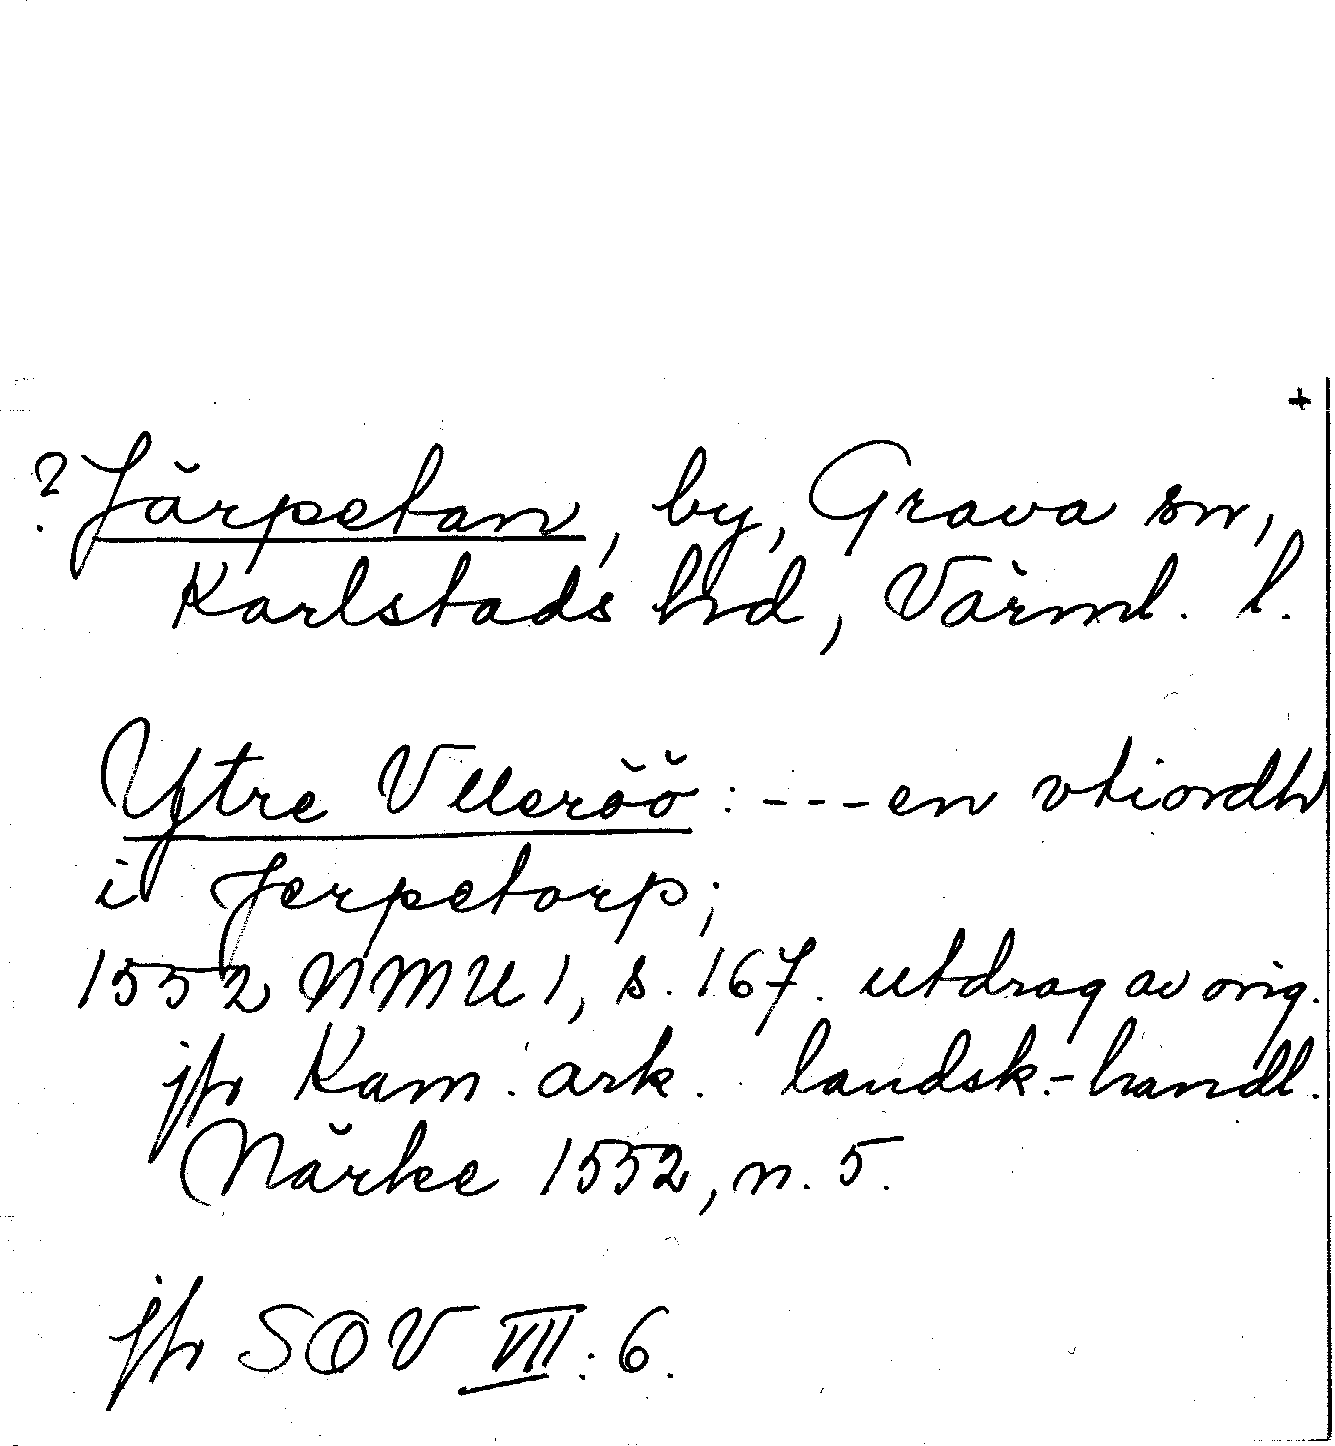 +
? Järpetan, by, Grava sn,
Karlstads hrd, Värml. l.
Ytre Vlleröö : ---en vtiordh
i Jerpetorp;
1552 NMU 1, s. 167. utdrag av orig.
jfr Kam. ark. landsk.-handl.
Närke 1552, n. 5.
jfr SOV VII: 6.